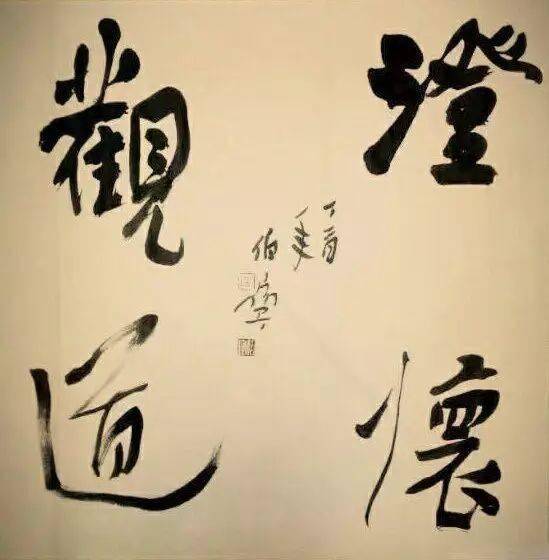 澄懷
觀道
伯